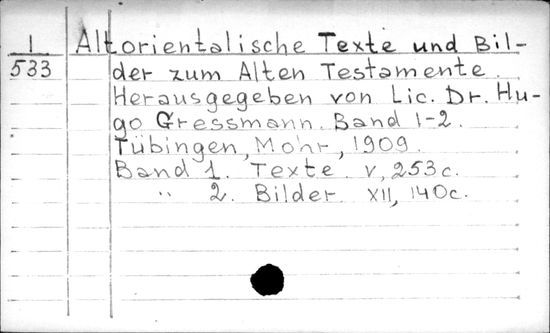 1 Altorientalische Texte und Bil-
533 der zum Alten Testamente.
Herausgegeben von Lic. Dr. Hu-
go Gressmann. Band 1-2.
Tübingen, Mohr, 1909.
Band 1. Texte. V, 253 c.
" 2. Bilder. XII, 140 c.